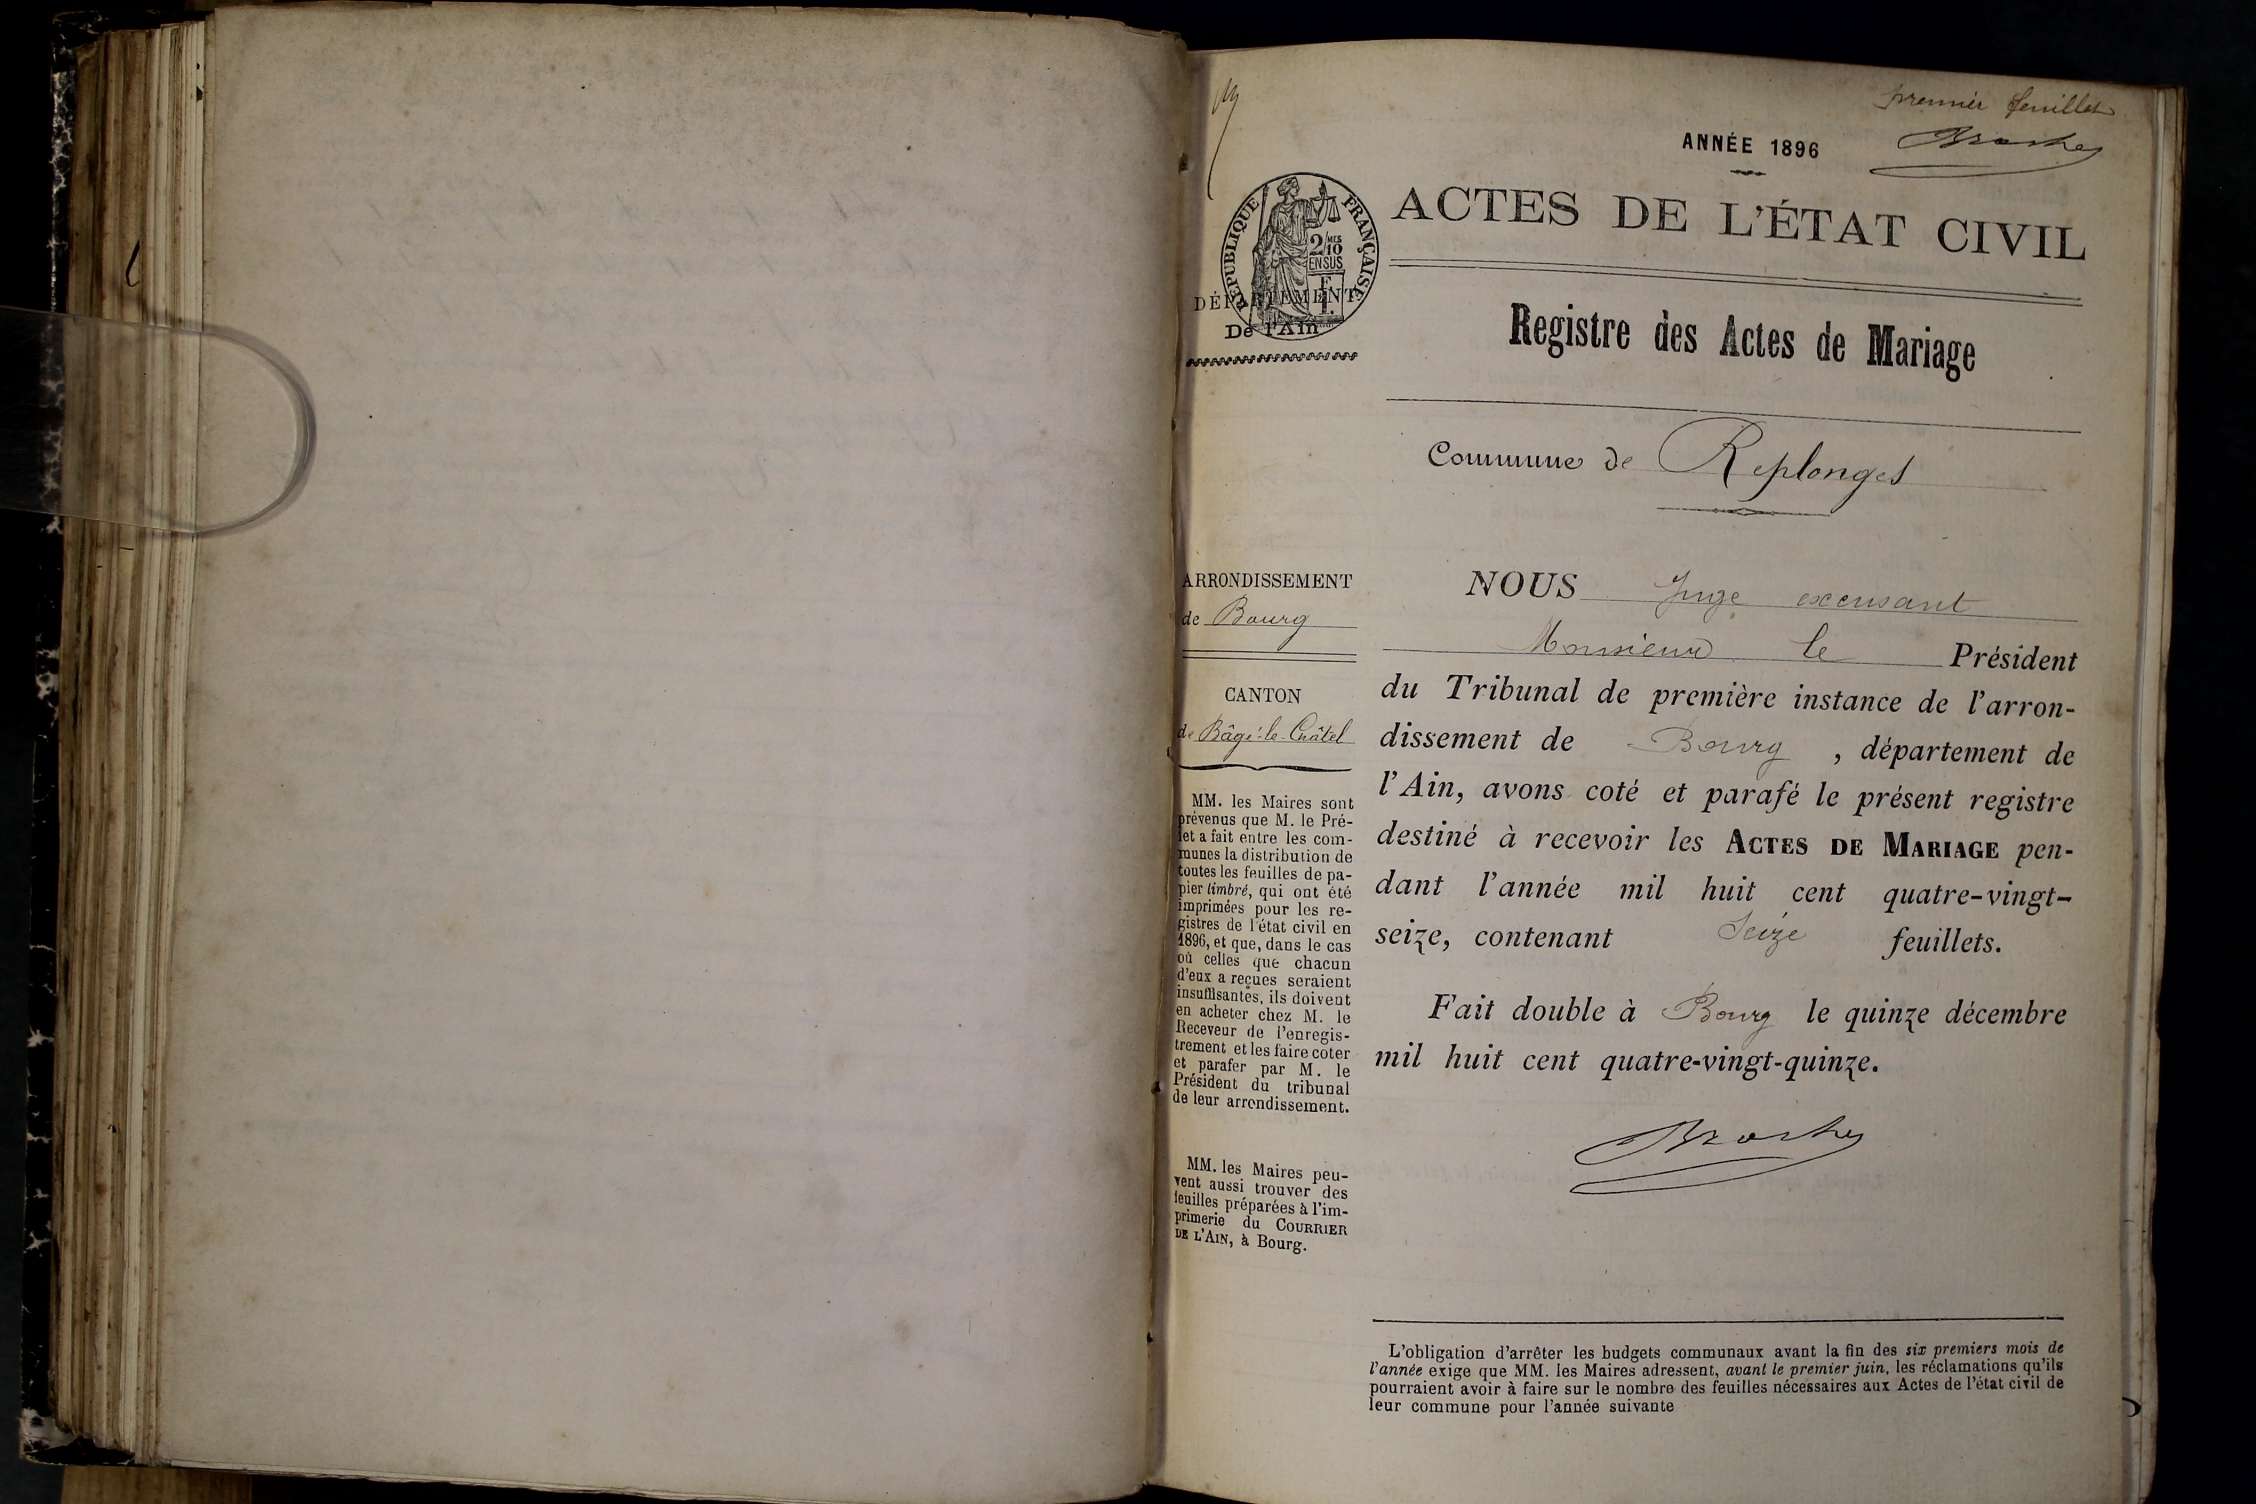 premier feuillet
ANNÉE 1896
ACTES DE L'ÉTAT CIVIL
RÉPUBLIQUE FRANÇAISE
2/10 MES
EN SUS
DÉPARTEMENT
De l'Ain
Registre des Actes de Mariage
Commune de Replonges
ARRONDISSEMENT
de Bourg
CANTON
de Bâgé-le-Châtel
MM. les Maires sont
prévenus que M. le Pré-
fet a fait entre les com-
munes la distribution de
toutes les feuilles de pa-
pier timbré, qui ont été
imprimées pour les re-
gistres de l'état civil en
1896, et que, dans le cas
où celles que chacun
d'eux a reçues seraient
insuffisantes, ils doivent
en acheter chez M. le
Receveur de l'enregis-
trement et les faire coter
et parafer par M. le
Président du tribunal
de leur arrondissement.
MM. les Maires peu-
vent aussi trouver des
feuilles préparées à l'im-
primerie du COURRIER
DE L'AIN, à Bourg.
NOUS Juge excusant
Monsieur le Président
du Tribunal de première instance de l'arron-
dissement de Bourg, département de
l'Ain, avons coté et parafé le présent registre
destiné à recevoir les ACTES DE MARIAGE pen-
dant l'année mil huit cent quatre-vingt-
seize, contenant Seize feuillets.
Fait double à Bourg le quinze décembre
mil huit cent quatre-vingt-quinze.
L'obligation d'arrêter les budgets communaux avant la fin des six premiers mois de
l'année exige que MM. les Maires adressent, avant le premier juin, les réclamations qu'ils
pourraient avoir à faire sur le nombre des feuilles nécessaires aux Actes de l'état civil de
leur commune pour l'année suivante